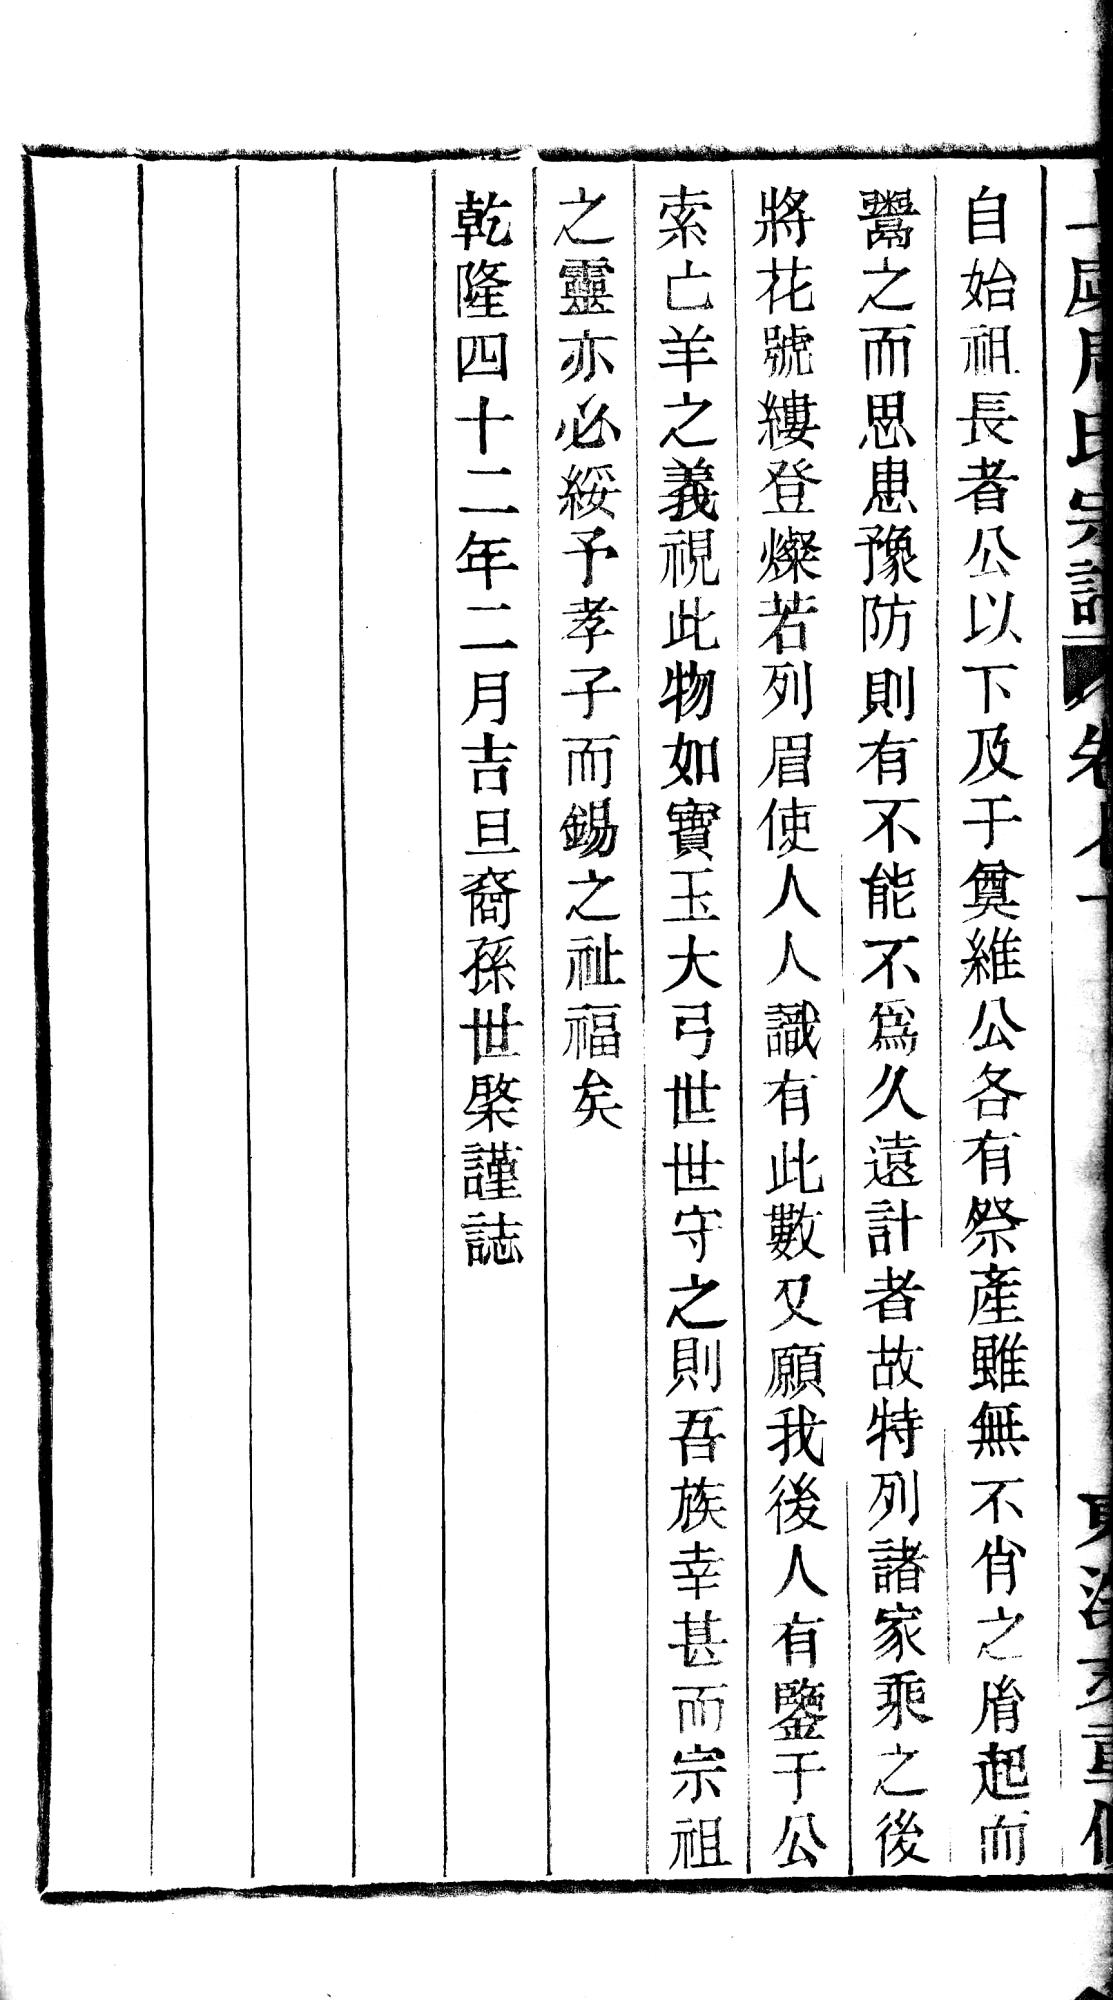 周氏宗譜
自始祖長者公以下及于奠維公各有祭產雖無不肖之胄起而
鬻之而思患豫防則有不能不爲久遠計者故特列諸家乘之後
將花號縷登燦若列眉使人人識有此數又願我後人有鑒于公
索亡羊之義視此物如寶玉大弓世世守之則吾族幸甚而宗祖
之靈亦必綏予孝子而錫之祉福矣
乾隆四十二年二月吉旦裔孫世棨謹誌